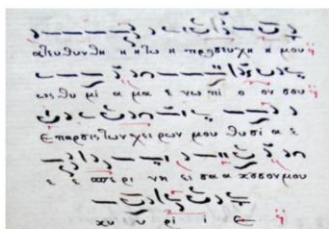 ατευθυνθη η η τω η προσευχη η μου
ως θυ μι α μα ε νω πι ο ον σου
Επαρσις των χειρων μου θυσι α ε
ε ε σπερι νη ει σα α κυσον μου
χυ υ υ ρι ι ε